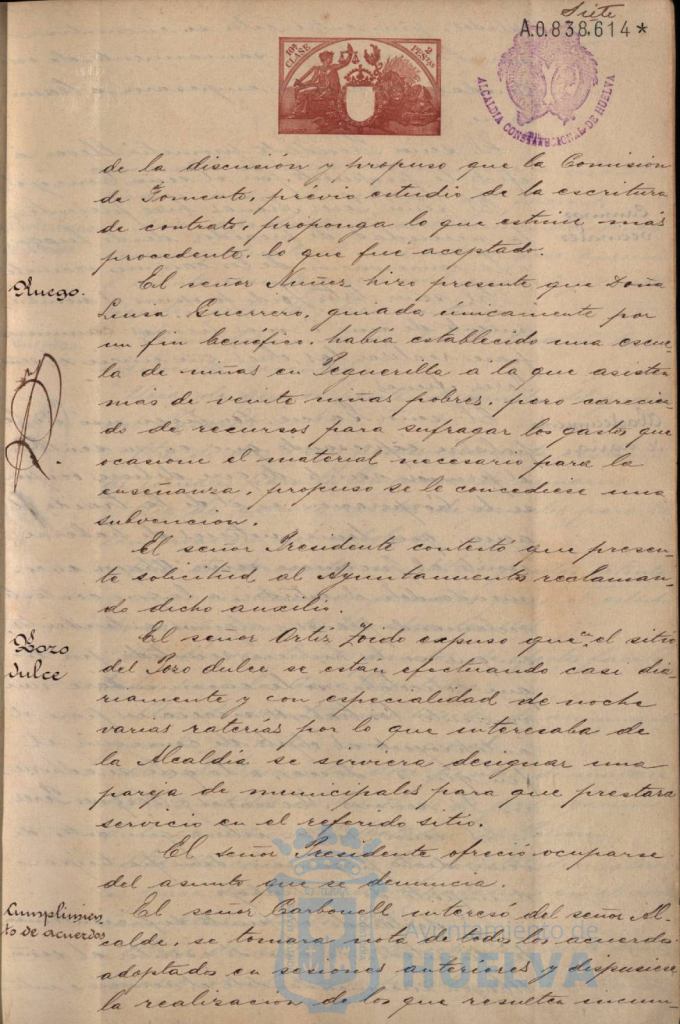 Siete
A.0.838,614*
10ª CLASE
2 PESETAS
ALCALDIA CONSTITUCIONAL DE HUELVA
de la discusión y propuso que la Comision
de Fomento, prévio estudio de la escritura
de contrato, proponga lo que estime más
procedente, lo que fué aceptado.
Ruego.
El señor Nuñez hizo presente que Doña
Luisa Guerrero, guiada únicamente por
un fin benéfico, había establecido una escue-
la de niñas en Peguerilla á la que asisten
más de veinte niñas pobres, pero carecien-
do de recursos para sufragar los gastos que
ocasione el material necesario para la
enseñanza, propuso se le concediese una
subvencion.
El señor Presidente contestó que presen-
te solicitud al Ayuntamiento reclaman-
do dicho auxilio.
Pozo
dulce
El señor Ortiz Zoido expuso que el sitio
del Pozo dulce se están efectuando casi dia-
riamente y con especialidad de noche
varias raterías por lo que interesaba de
la Alcaldía se sirviera designar una
pareja de municipales para que prestara
servicio en el referido sitio.
El señor Presidente ofreció ocuparse
del asunto que se denuncia.
Cumplimien
to de acuerdos
El señor Carbonell interesó del señor Al-
calde, se tomara nota de todos los acuerdos
adoptados en sesiones anteriores y dispusiese
la realizacion de los que resulten incum-
Ayuntamiento de
HUELVA